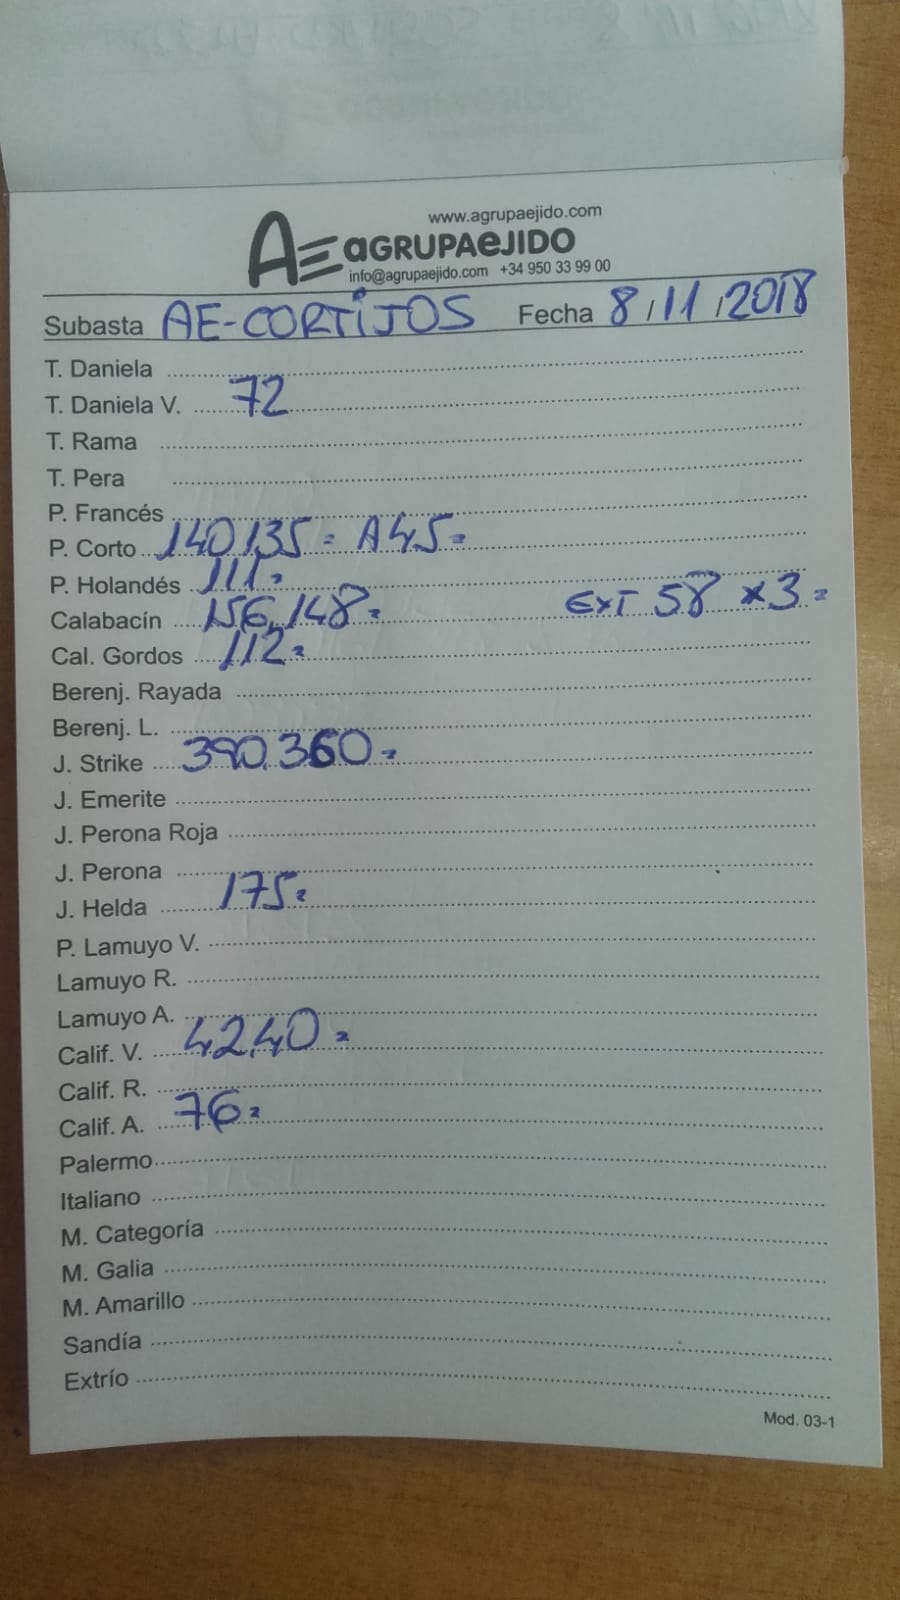 www.agrupaejido.com
AE aGRUPAeJIDO
info@agrupaejido.com +34 950 33 99 00
Subasta AE-CORTIJOS Fecha 8/11/2018
T. Daniela
T. Daniela V. 72
T. Rama
T. Pera
P. Francés
P. Corto 140,135= A45=
P. Holandés 111=
Calabacín 156,148= EXT 58 x3=
Cal. Gordos 112=
Berenj. Rayada
Berenj. L.
J. Strike 390,360=
J. Emerite
J. Perona Roja
J. Perona
J. Helda 175=
P. Lamuyo V.
Lamuyo R.
Lamuyo A.
Calif. V. 42,40=
Calif. R.
Calif. A. 76=
Palermo
Italiano
M. Categoría
M. Galia
M. Amarillo
Sandía
Extrío
Mod. 03-1